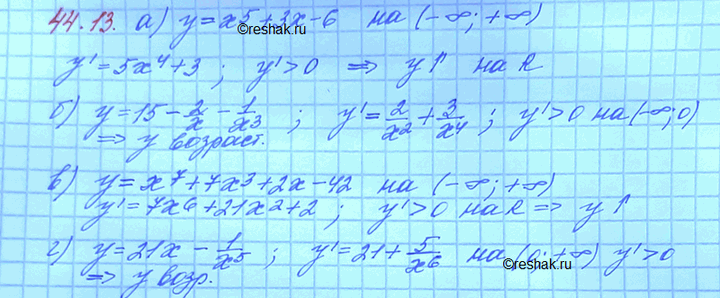 44.13. а) y = x⁵ + 3x - 6 на (-∞; +∞)
©reshak.ru
y' = 5x⁴ + 3 ; y' > 0 ⇒ y↑ на R
б) y = 15 - 2/x - 1/x³ ; y' = 2/x² + 3/x⁴ ; y' > 0 на (-∞; 0)
⇒ y возраст.
в) y = x⁷ + 7x³ + 2x - 42 на (-∞; +∞)
y' = 7x⁶ + 21x² + 2 ; y' > 0 на R ⇒ y↑
г) y = 21x - 1/x⁵ ; y' = 21 + 5/x⁶ на (0; +∞) y' > 0
⇒ y возр.
©reshak.ru
©reshak.ru